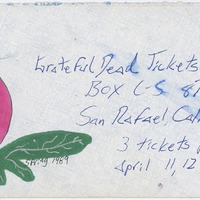 Grateful Dead Tickets
BOX C-S
San Rafael Cal
3 tickets
April 11, 12
Spring 1989